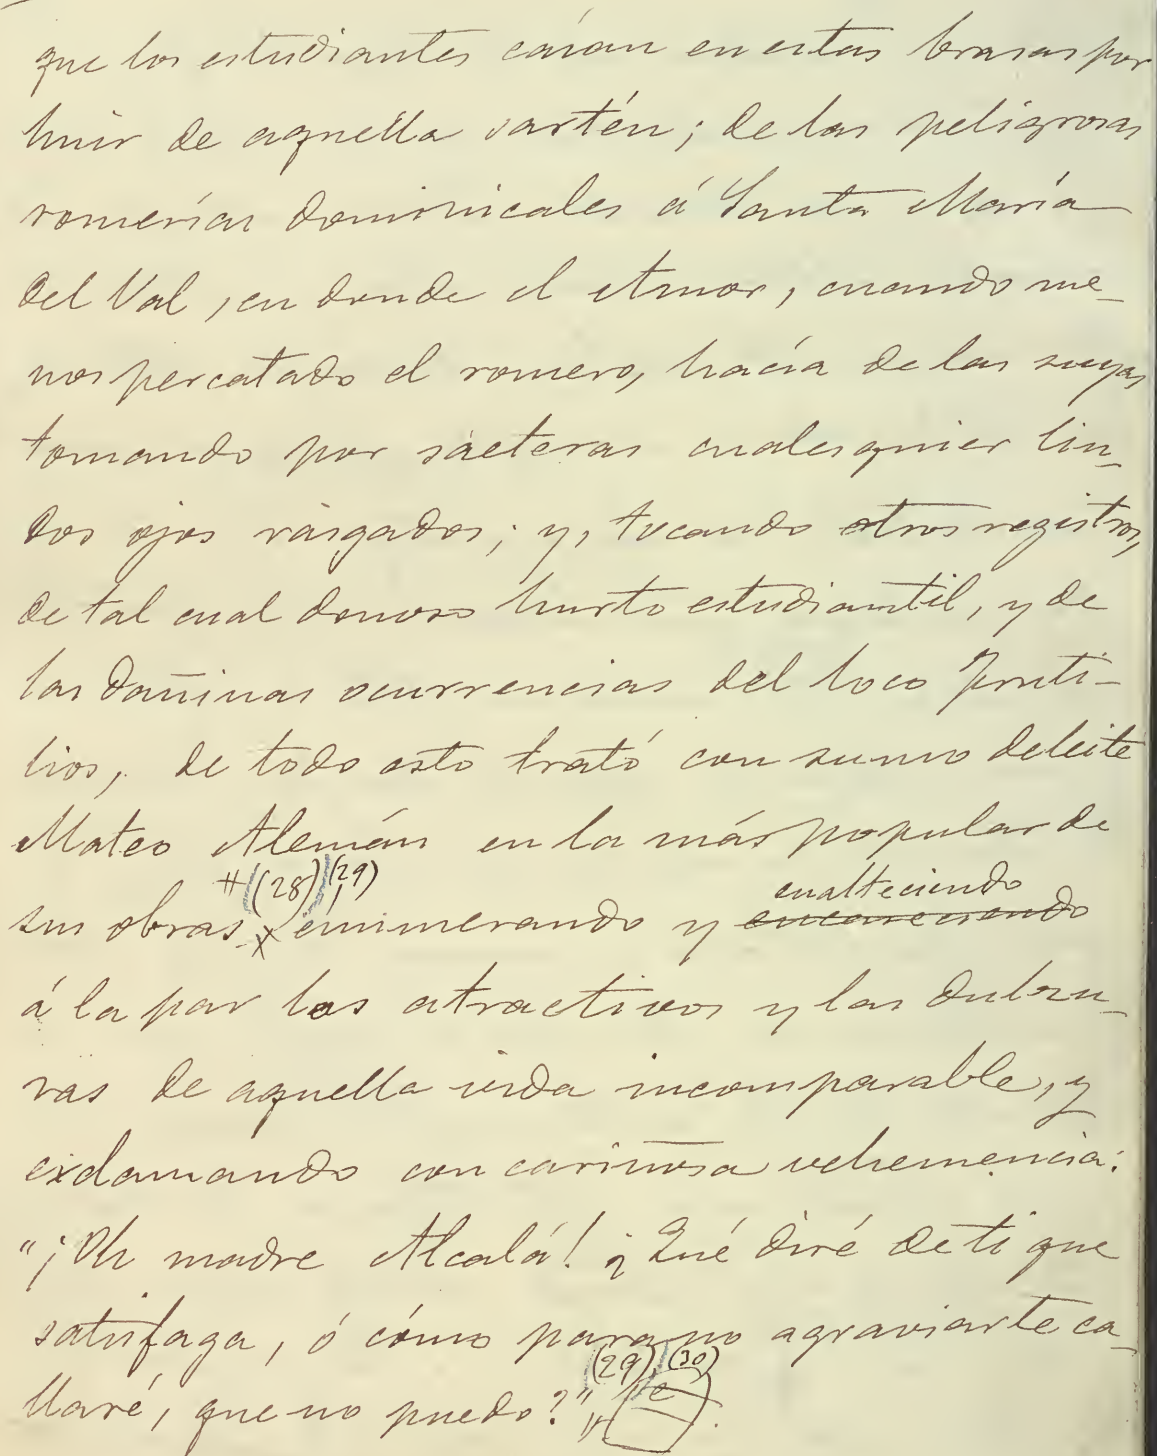 que los estudiantes caían en estas brasas por
huir de aquella sartén; de las peligrosas
romerías dominicales á Santa María
del Val, en donde el Amor, cuando me-
nos percatado el romero, hacía de las suyas
tomando por saeteras cualesquier lin-
dos ojos rasgados; y, tocando otros registros,
de tal cual donoso hurto estudiantil, y de
las dañinas ocurrencias del loco Fruti-
lios, de todo esto trató con sumo deleite
Mateo Alemán en la más popular de
#(28) (29) enalteciendo
sus obras, x enumerando y encareciendo
á la par los atractivos y las dulzu-
ras de aquella vida incomparable, y
exclamando con cariñosa vehemencia:
"¡Oh madre Alcalá! ¿Qué diré de ti que
satisfaga, ó cómo para no agraviarte ca-
(29) (30)
llaré, que no puedo?"